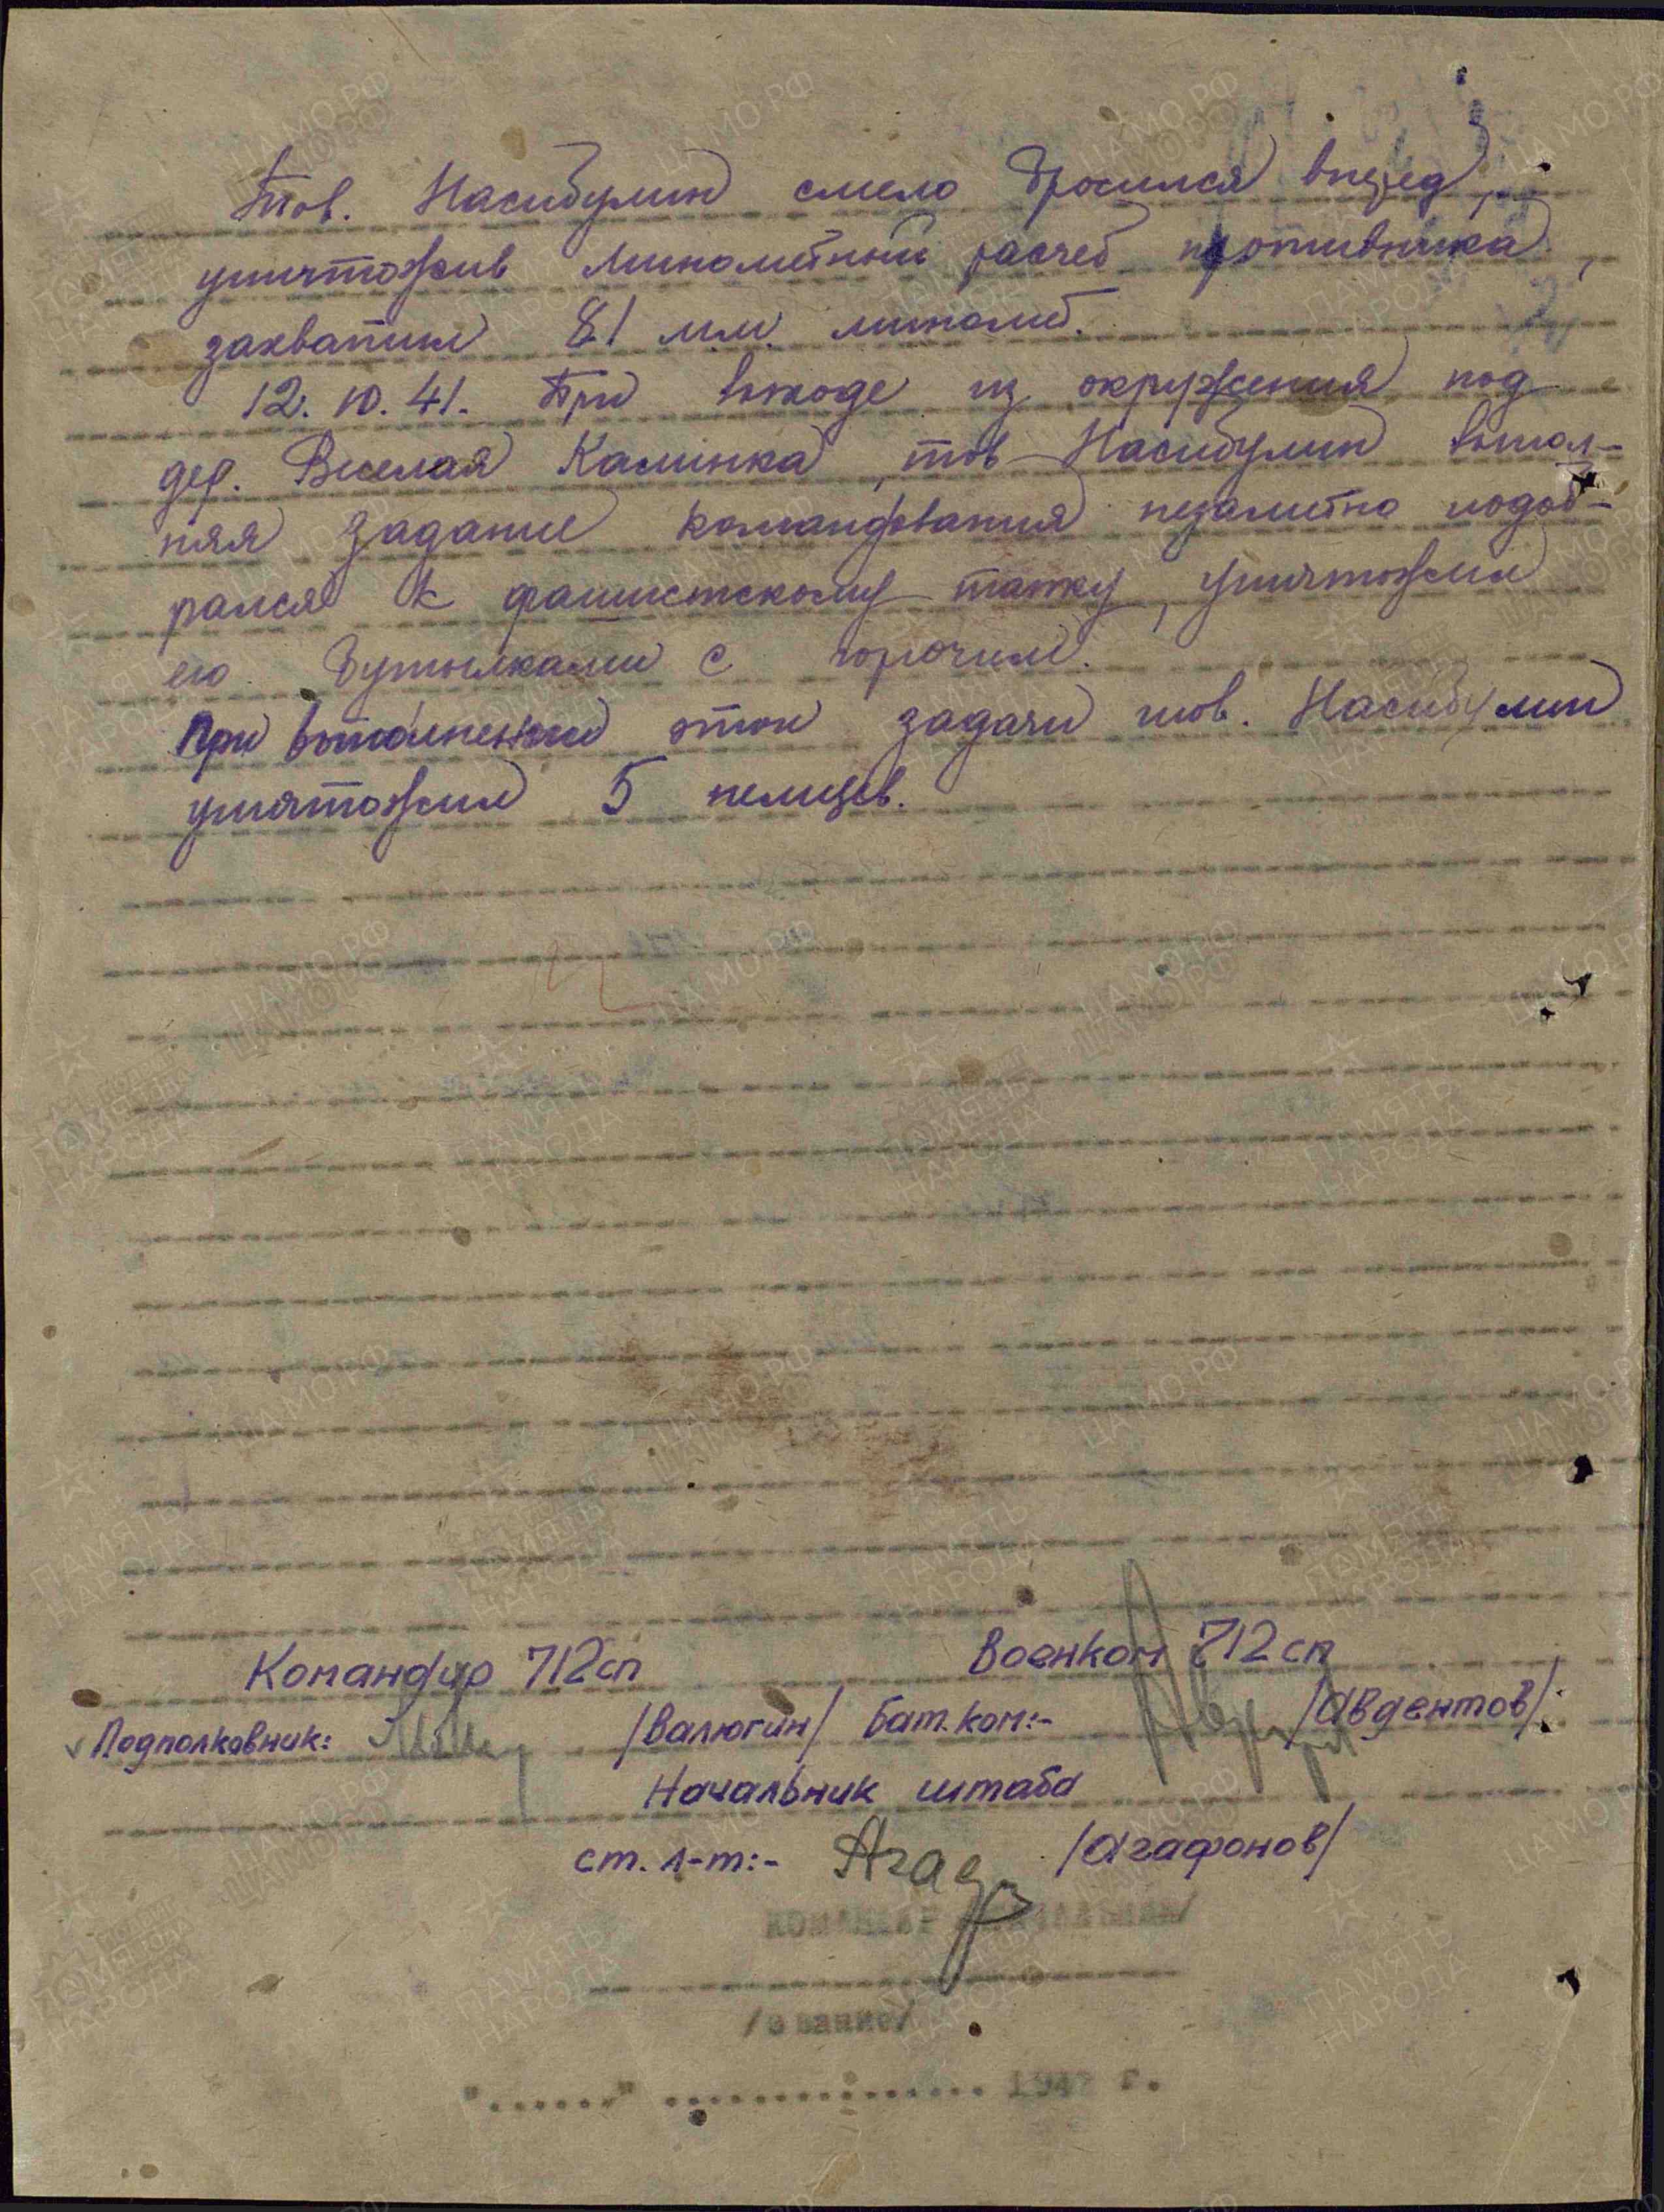 Тов. Насибулин смело бросился вперед,
уничтожив минометный расчет противника,
захватил 81 мм. миномет.
12.10.41. При выходе из окружения под
дер. Веселая Калинка, тов Насибулин выпол-
няя задание командования незаметно подоб-
рался к фашистскому танку, уничтожил
его бутылками с горючим.
При выполнении этой задачи тов. Насибулин
уничтожил 5 немцев.
Командир 712сп Военком 712сп
Подполковник: /Валюгин/ Бат.ком:- /Авдентов/
Начальник штаба
ст. л-т:- Агаф /Агафонов/
КОМАНДИР
/звание/
"......" ................ 194 г.